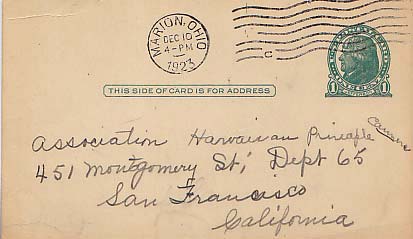 MARION, OHIO
DEC 10
4-PM
1923
C
THIS SIDE OF CARD IS FOR ADDRESS
1 1
Association Hawaiian Pineapple Canners
451 Montgomery St, Dept 65
San Francisco
California